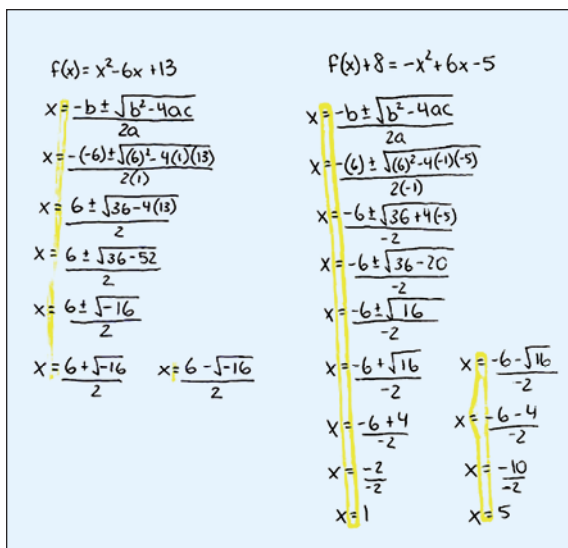 f(x) = x²-6x+13
x = -b ± √(b²-4ac) / 2a
x = -(-6) ± √((6)²-4(1)(13)) / 2(1)
x = 6 ± √(36-4(13)) / 2
x = 6 ± √(36-52) / 2
x = 6 ± √(-16) / 2
x = 6+√(-16) / 2    x = 6-√(-16) / 2
f(x)+8 = -x²+6x-5
x = -b ± √(b²-4ac) / 2a
x = -(6) ± √((6)²-4(-1)(-5)) / 2(-1)
x = -6 ± √(36+4(-5)) / -2
x = -6 ± √(36-20) / -2
x = -6 ± √16 / -2
x = -6+√16 / -2    x = -6-√16 / -2
x = -6+4 / -2    x = -6-4 / -2
x = -2 / -2    x = -10 / -2
x = 1    x = 5